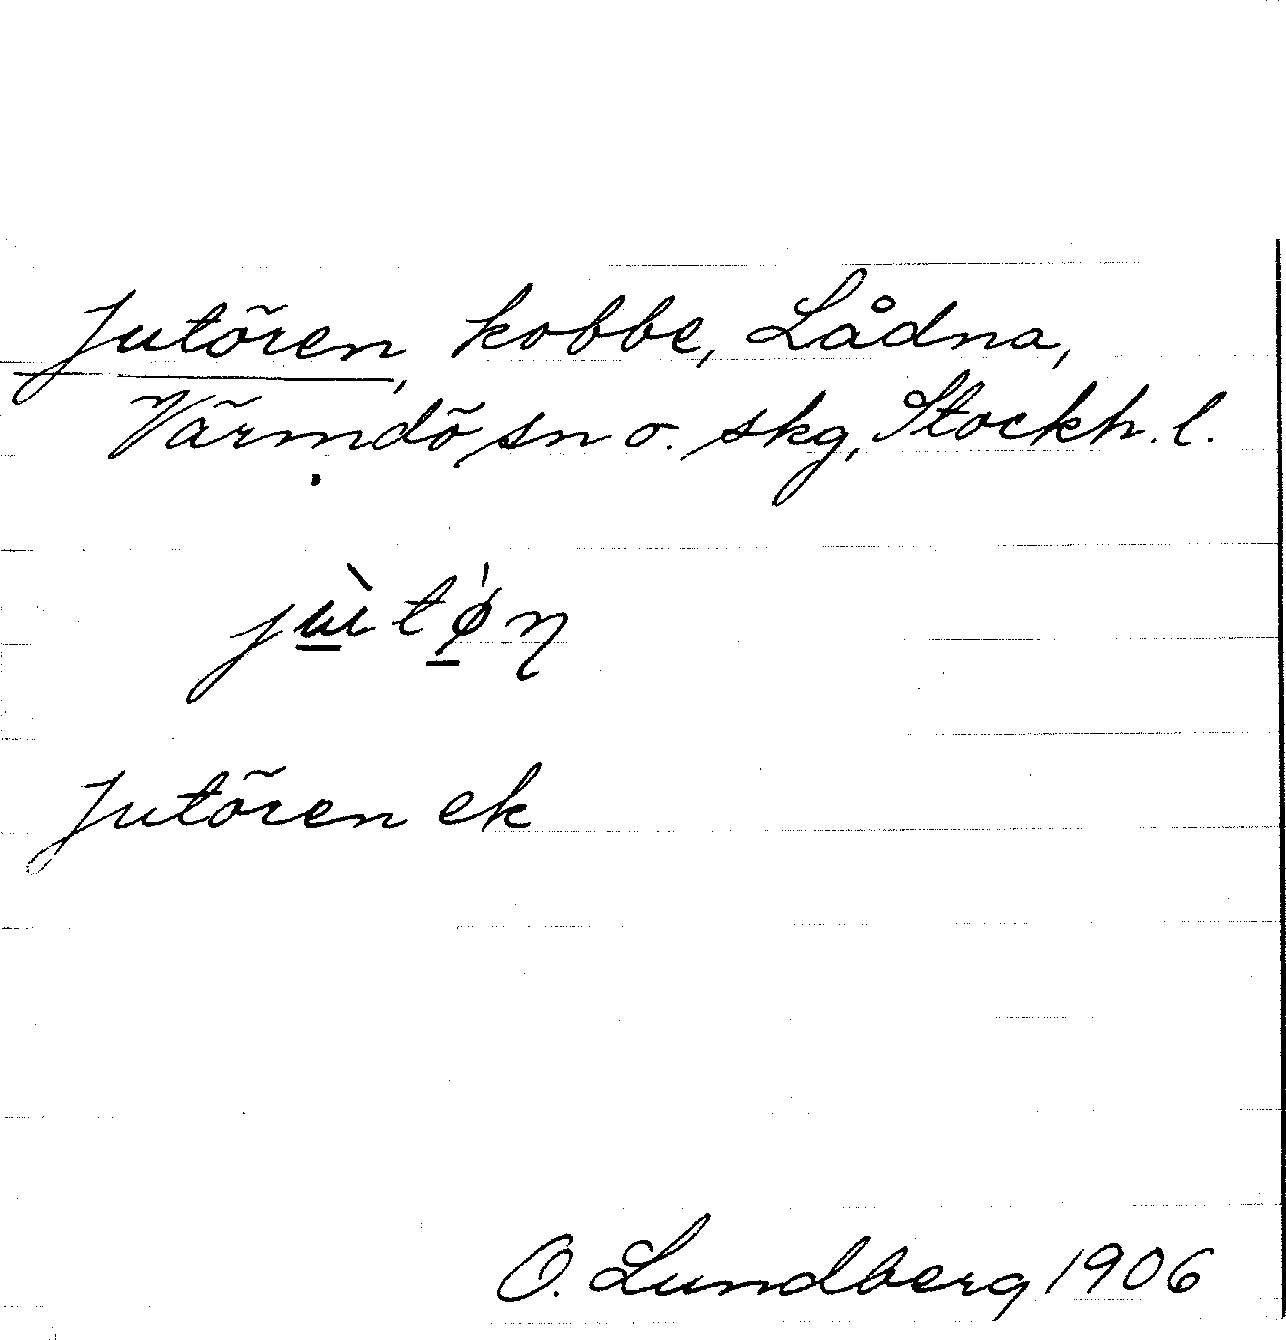 Jutören, kobbe, Lådna,
Värmdö sn o. skg, Stockh. l.
jɯ̀tǿn
Jutören ek
O. Lundberg 1906